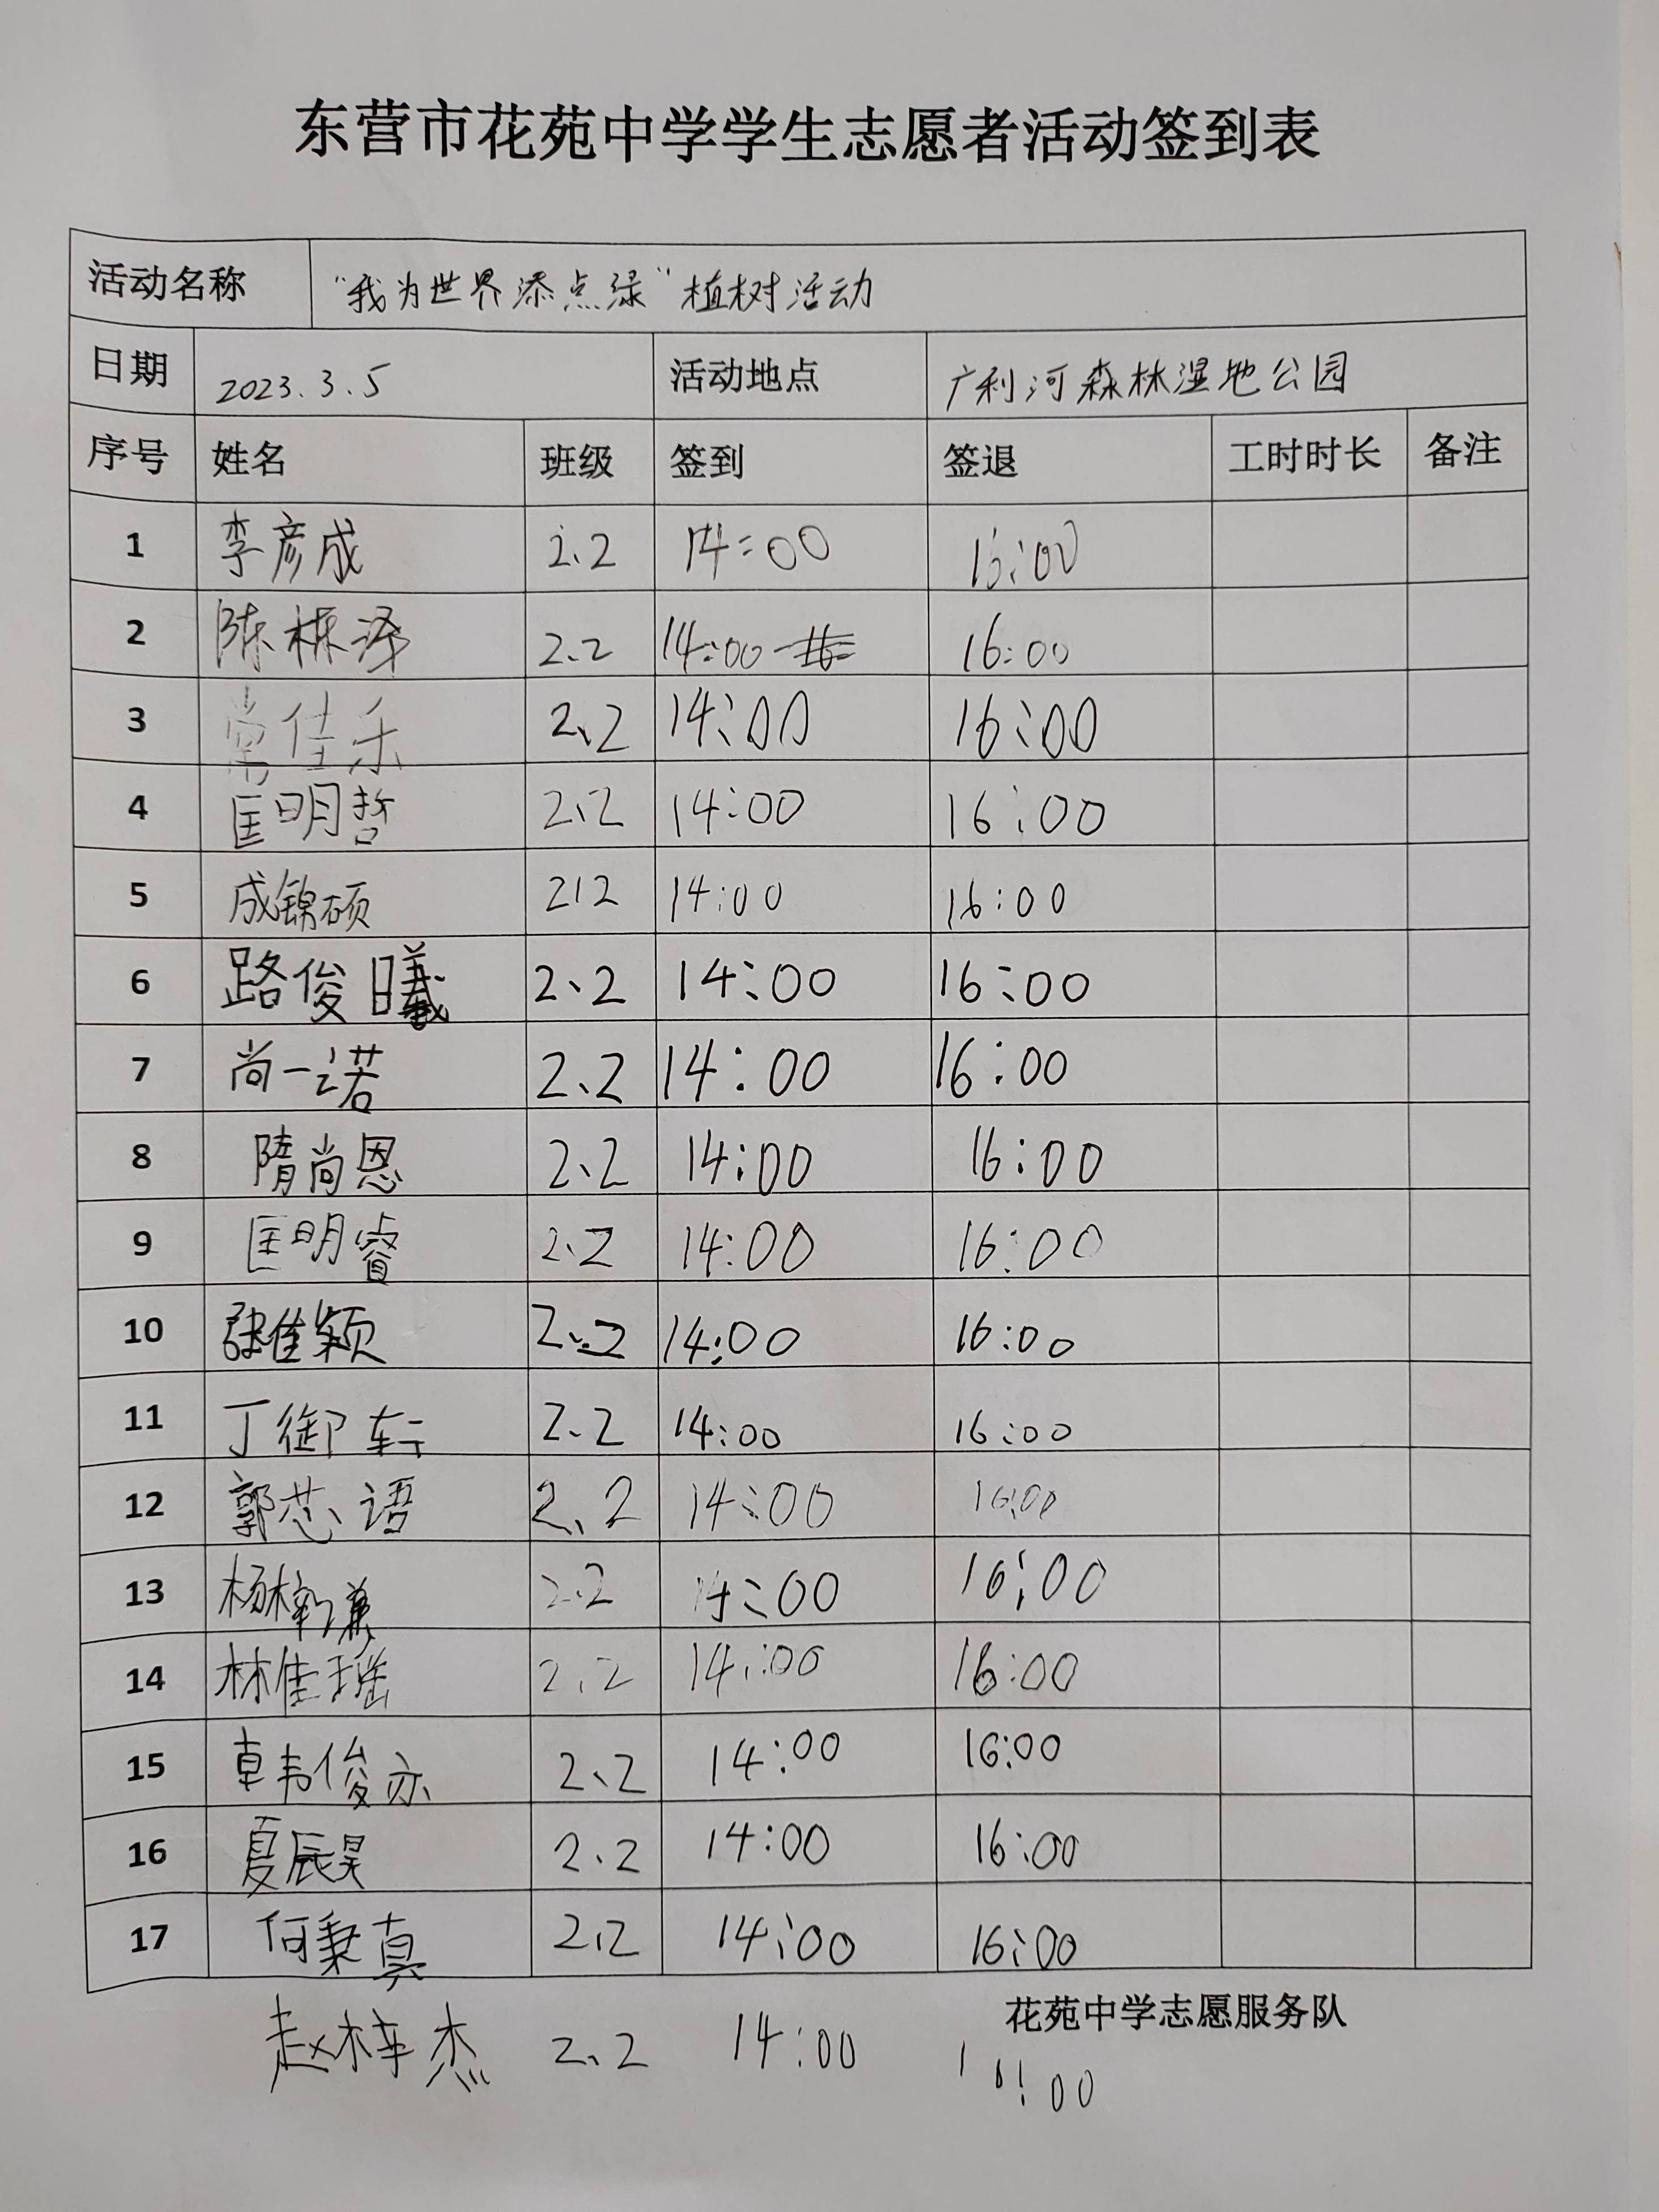 东营市花苑中学学生志愿者活动签到表
活动名称 “我为世界添点绿”植树活动
日期 2023.3.5 活动地点 广利河森林湿地公园
序号 姓名 班级 签到 签退 工时时长 备注
1 李彦成 2.2 14:00 16:00
2 陈栋泽 2.2 14:00 16:00
3 常佳乐 2、2 14:00 16:00
4 匡明哲 2.2 14:00 16:00
5 成锦硕 2.2 14:00 16:00
6 路俊曦 2、2 14:00 16:00
7 尚一诺 2、2 14:00 16:00
8 隋尚恩 2、2 14:00 16:00
9 匡明睿 2.2 14:00 16:00
10 张佳颖 2、2 14:00 16:00
11 丁御轩 2.2 14:00 16:00
12 郭芯语 2、2 14:00 16:00
13 2.2 14:00 16:00
14 林佳瑶 2.2 14:00 16:00
15 韦俊亦 2、2 14:00 16:00
16 夏辰昊 2.2 14:00 16:00
17 何秉真 2.2 14:00 16:00
花苑中学志愿服务队
赵梓杰 2、2 14:00 :00